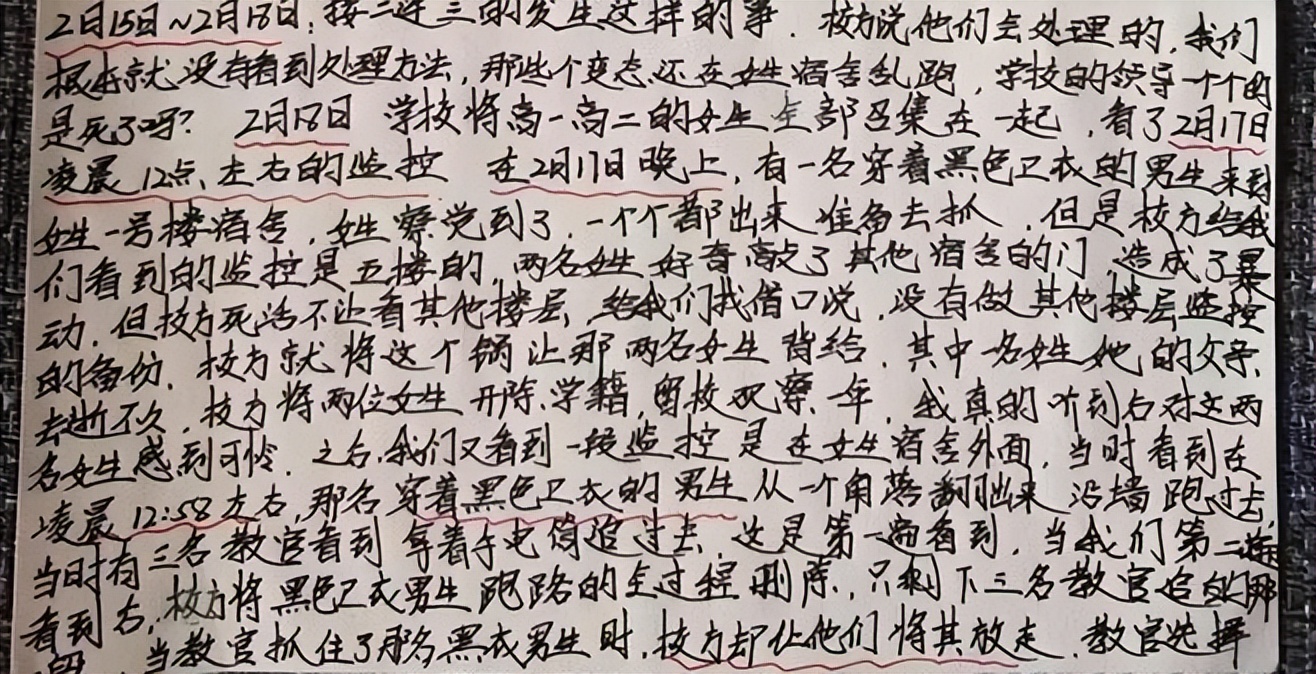 2月15日~2月18日:接二连三的发生这样的事.校方说他们会处理的,我们
根本就没有看到处理方法,那些个变态还在女生宿舍乱跑,学校的领导一个个的
是死了吗? 2月18日 学校将高一高二的女生全部召集在一起,看了2月17日
凌晨12点、左右的监控 在2月17日晚上,有一名穿着黑色卫衣的男生来到
女生一号楼宿舍,女生察觉到了,一个个都出来准备去抓,但是校方给我
们看到的监控是五楼的,两名女生好奇敲了其他宿舍的门,造成了暴
动,但校方死活不让看其他楼层,给我们找借口说,没有做其他楼层监控
的备份,校方就将这个锅让那两名女生背给,其中一名女生她的父亲
去逝不久,校方将两位女生开除、学籍,留校观察一年,我真的听到后对这两
名女生感到可怜.之后,我们又看到一段监控是在女生宿舍外面,当时看到在
凌晨12:58左右,那名穿着黑色卫衣的男生从一个角落翻出来沿墙跑过去,
当时有三名教官看到拿着手电筒追过去,这是第一遍看到,当我们第二遍
看到后,校方将黑色卫衣男生跑路的全过程删除,只剩下三名教官追的那
当教官抓住了那名黑衣男生时,校方却让他们将其放走,教官选择